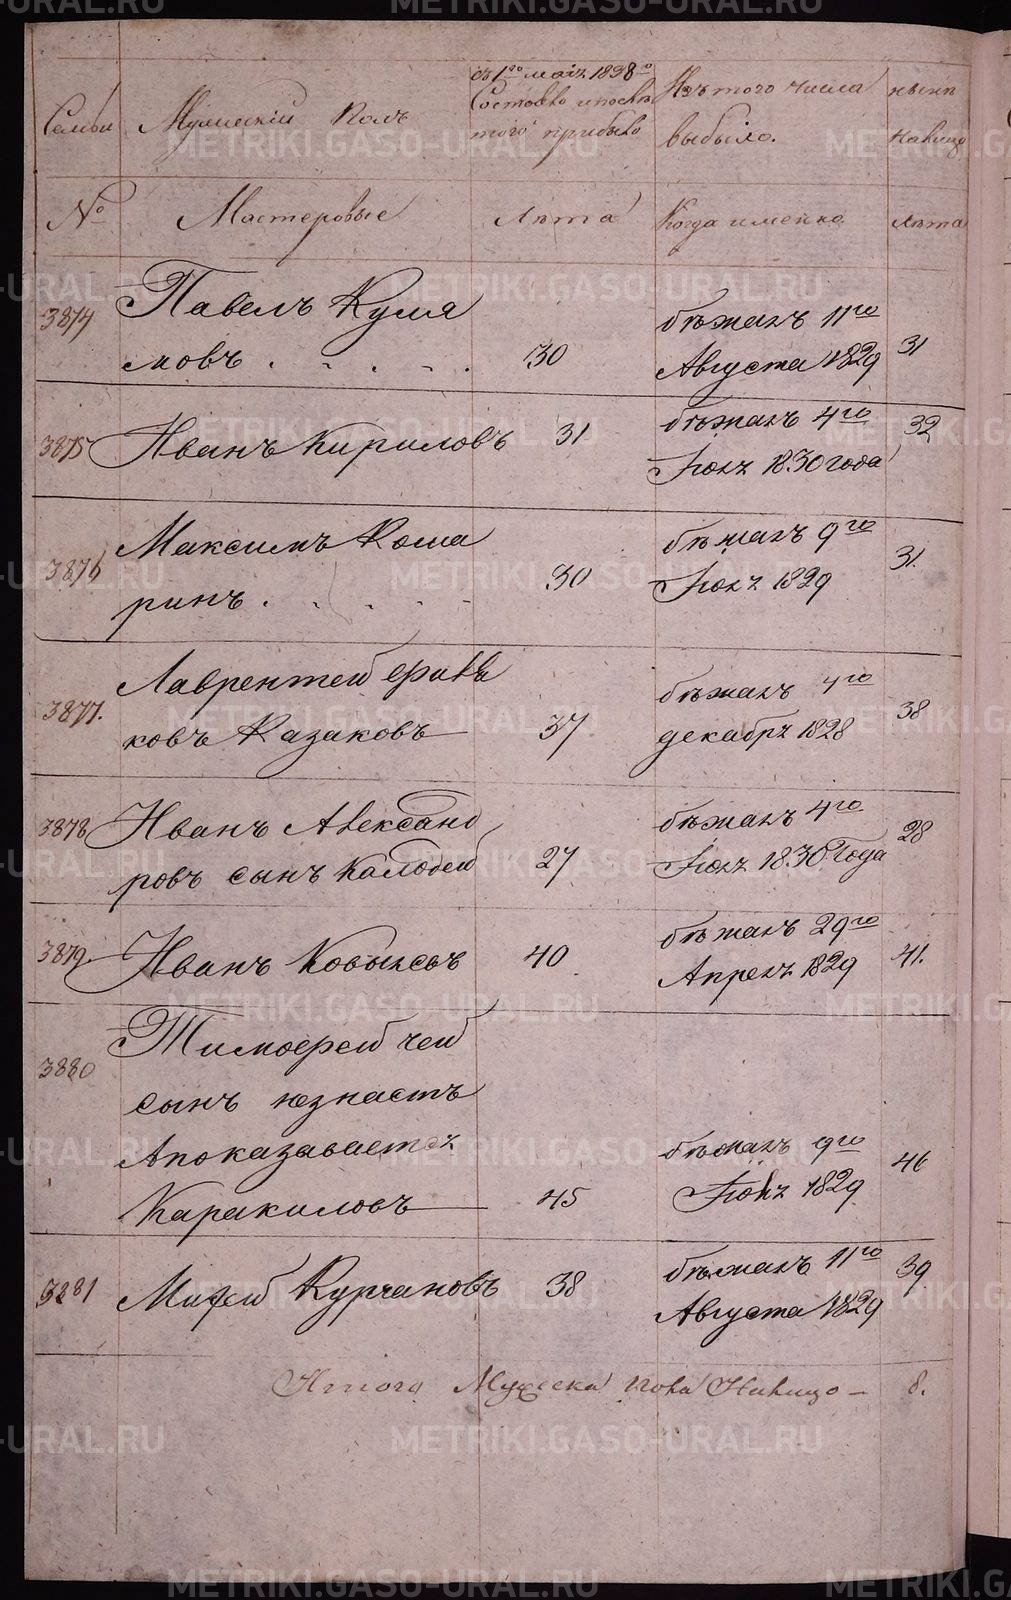 Семьи
Мужескій Полъ
съ 1го маія 1838го
Состояло и после
того прибыло
Изъ того числа
выбыло.
ныне
налицо
№
Мастеровые
Лѣта
Когда именно
Лѣта
3874
Павелъ Куля
мовъ . . . . .
30
бѣжалъ 11го
Августа 1829
31
3875
Иванъ Кириловъ
31
бѣжалъ 4го
Іюля 1830 года
32
3876
Максимъ Коша
ринъ . . . . .
30
бѣжалъ 9го
Іюля 1829
31.
3877.
Лаврентей
ковъ Казаковъ
37
бѣжалъ 4го
декабря 1828
38
3878
Иванъ Александ
ровъ сынъ
27
бѣжалъ 4го
Іюля 1830 Года
28
3879.
Иванъ
40
бѣжалъ 29го
Апреля 1829
41.
3880
Тимофей чей
сынъ незнаетъ
Апоказывается
Каракиловъ
45
бѣжалъ 9го
1829
46
3881
Михей Курчановъ
38
бѣжалъ 11го
Августа 1829
39
Итого Мужеска пола Налицо — 8.
METRIKI.GASO-URAL.RU